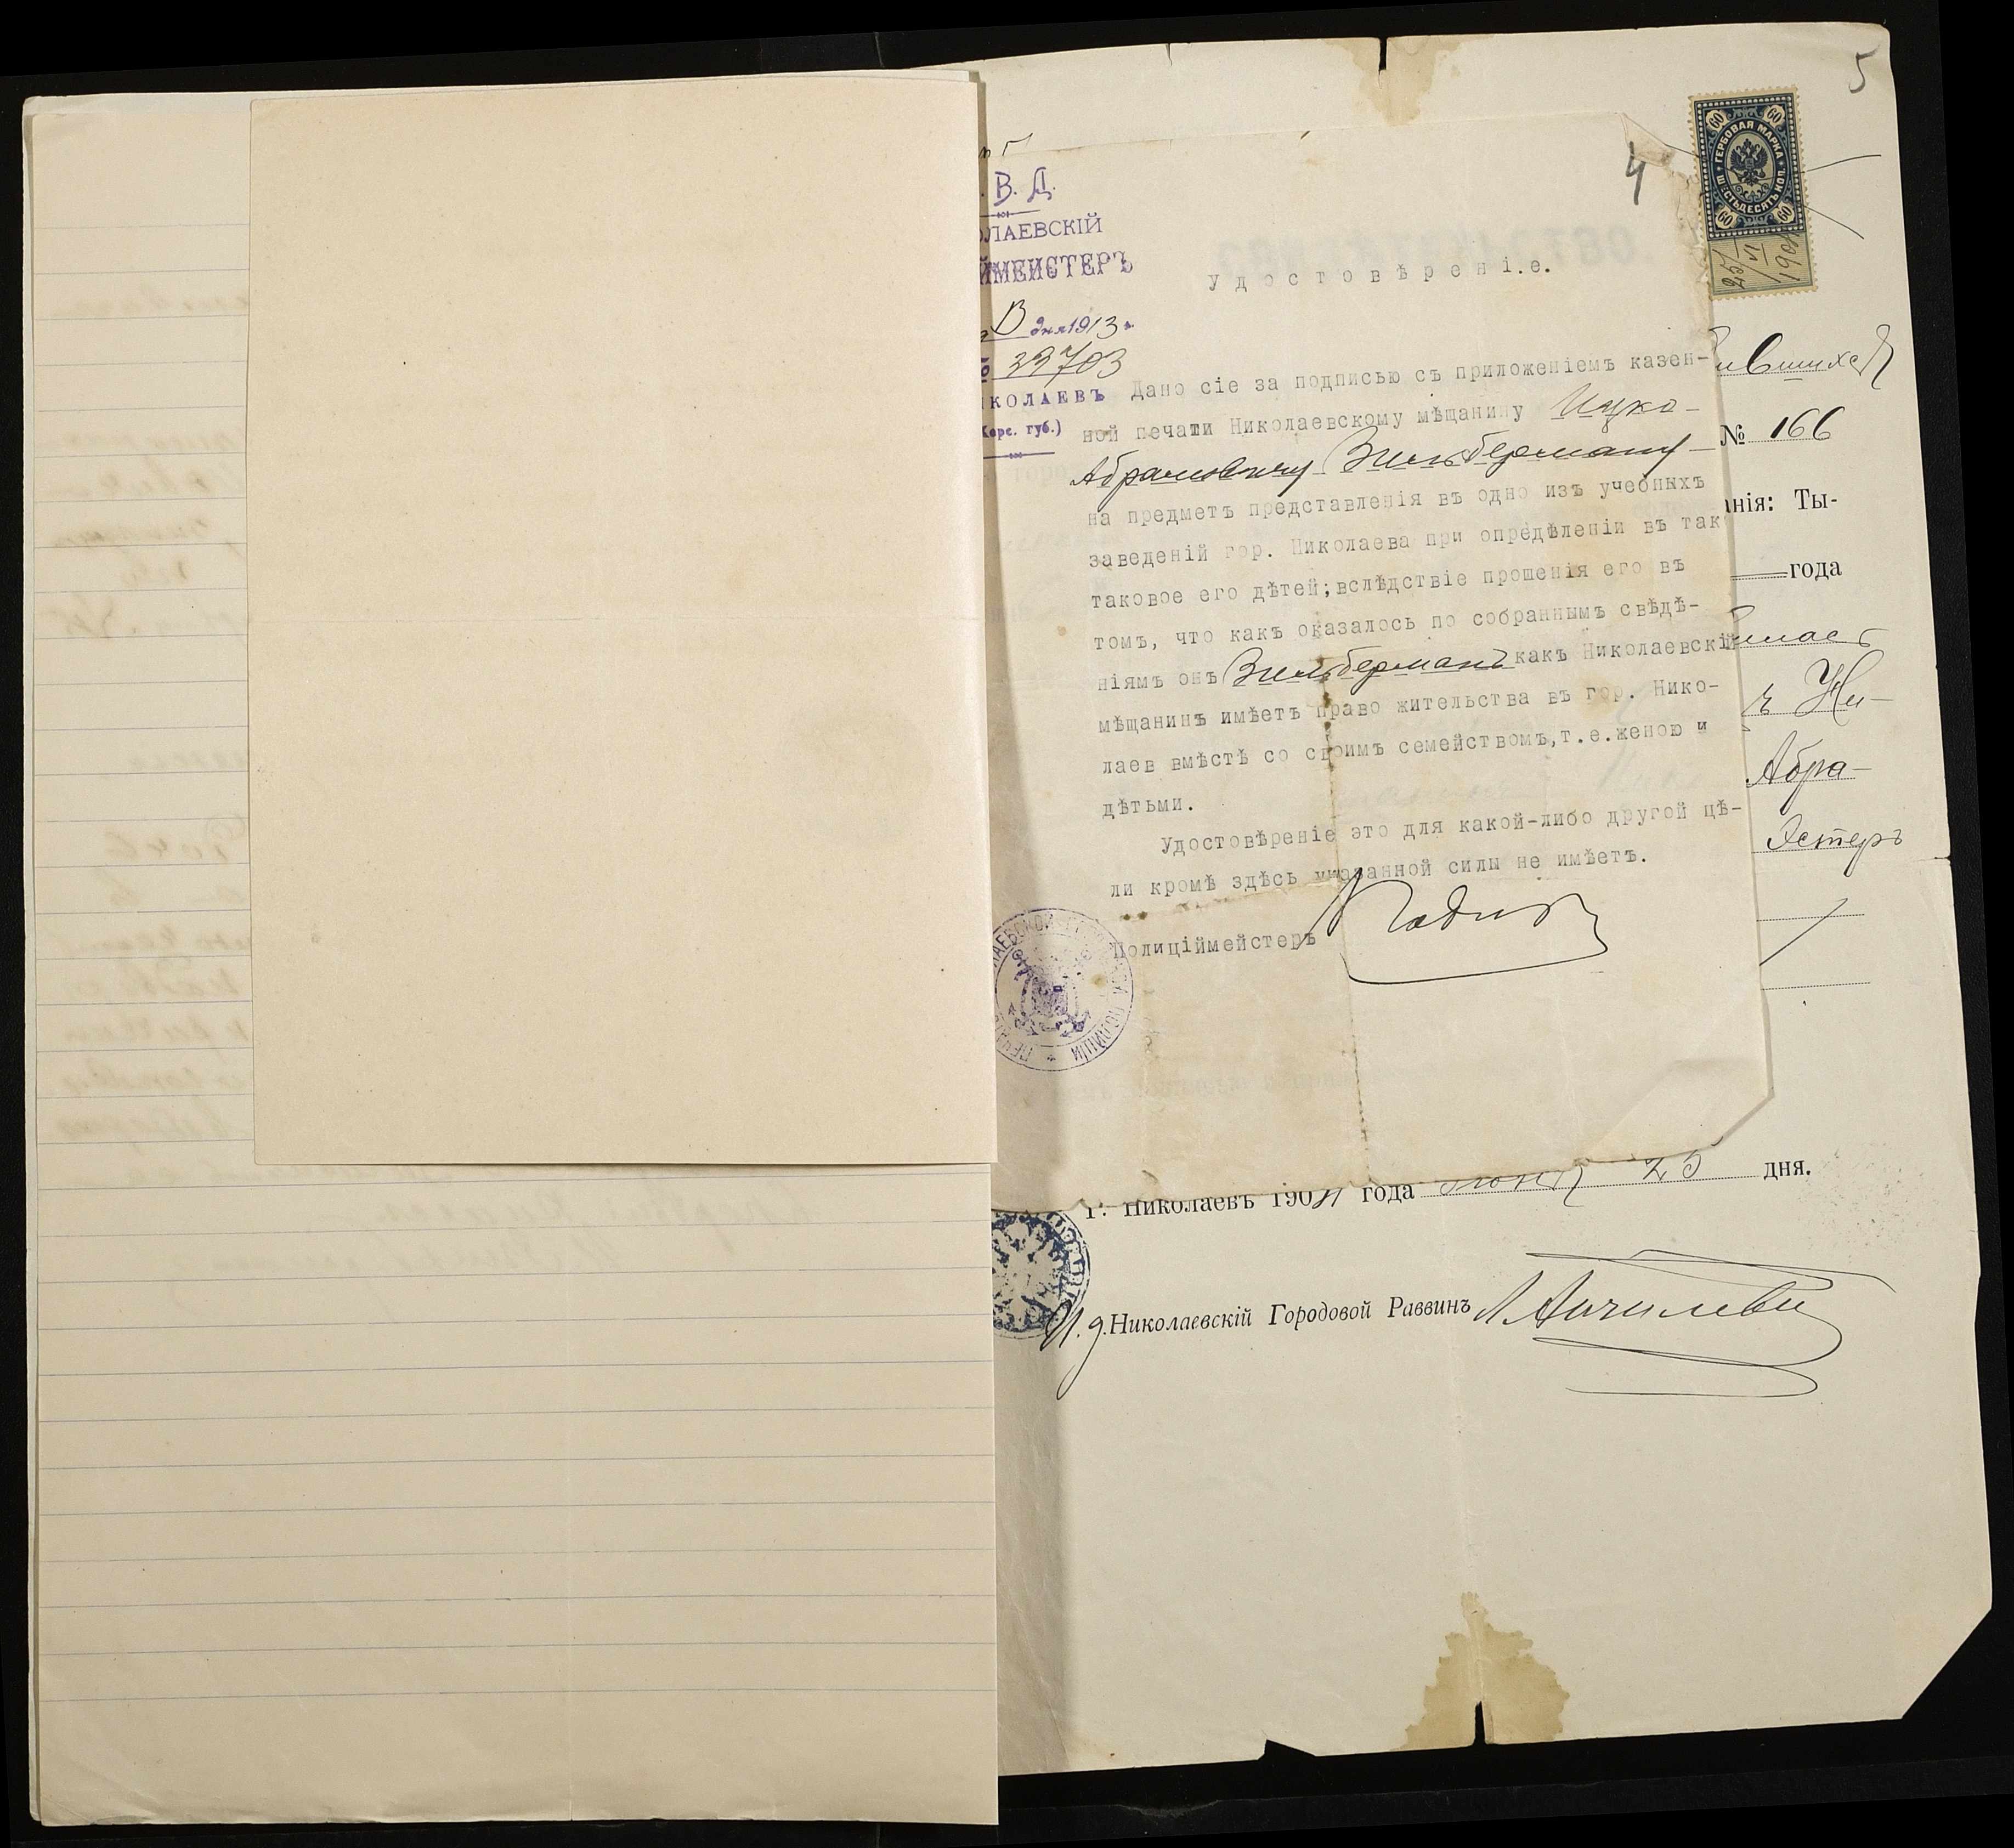 5
4
60 60
ГЕРБОВАЯ МАРКА
ШЕСТЬДЕСЯТЬ КОП.
60 60
В. Д.
ОЛАЕВСКІЙ
ЙМЕЙСТЕРЪ
дня 1913 г.
33703
КОЛАЕВЪ
Херс. губ.)
Удостовѣрені.е.
Дано сіе за подписью съ приложеніемъ казен-
ной печати Николаевскому мѣщанину Ицко-
Абрамовичу Зильберману
на предметъ представленія въ одно изъ учебныхъ
заведеній гор. Николаева при опредѣленіи въ так
таковое его дѣтей;вслѣдствіе прошенія его въ
томъ, что какъ оказалось по собраннымъ свѣдѣ-
ніямъ онъ Зильберманъ какъ Николаевскій
мѣщанинъ имѣетъ право жительства въ гор. Нико-
лаев вмѣстѣ со своимъ семействомъ,т.е.женою и
дѣтьми.
Удостовѣреніе это для какой-либо другой цѣ-
ли кромѣ здѣсь указанной силы не имѣетъ.
Полиціймейстеръ
ившихся
№ 166
анія: Ты-
года
ъ Ни-
Абра-
Эстеръ
Г. Николаевъ 190 года июня 25 дня.
И.д. Николаевскій Городовой Раввинъ